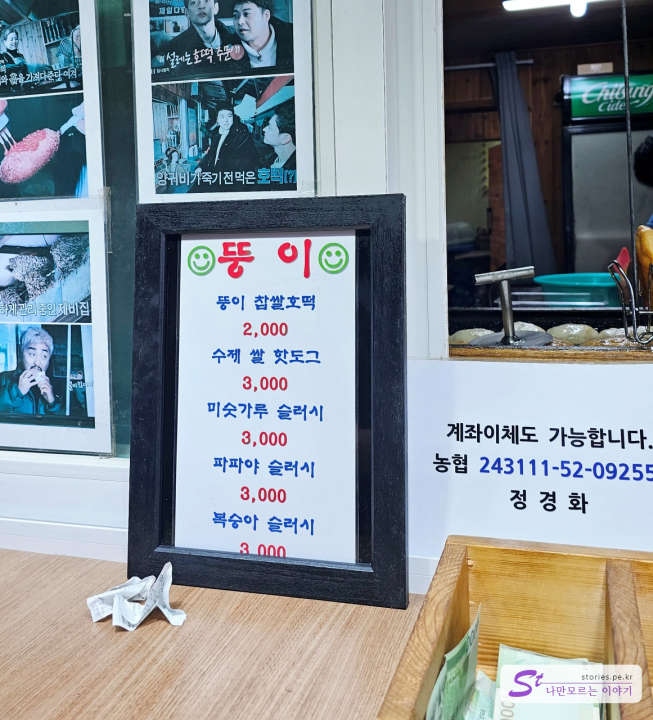 "설레는 호떡 주문"
양귀비가 죽기 전 먹은 호떡(?)
Chilsung
Cider
뚱이
뚱이 찹쌀호떡
2,000
수제 쌀 핫도그
3,000
미숫가루 슬러시
3,000
파파야 슬러시
3,000
복숭아 슬러시
3,000
계좌이체도 가능합니다.
농협 243111-52-09255
정 경 화
St
stories.pe.kr
나만모르는 이야기